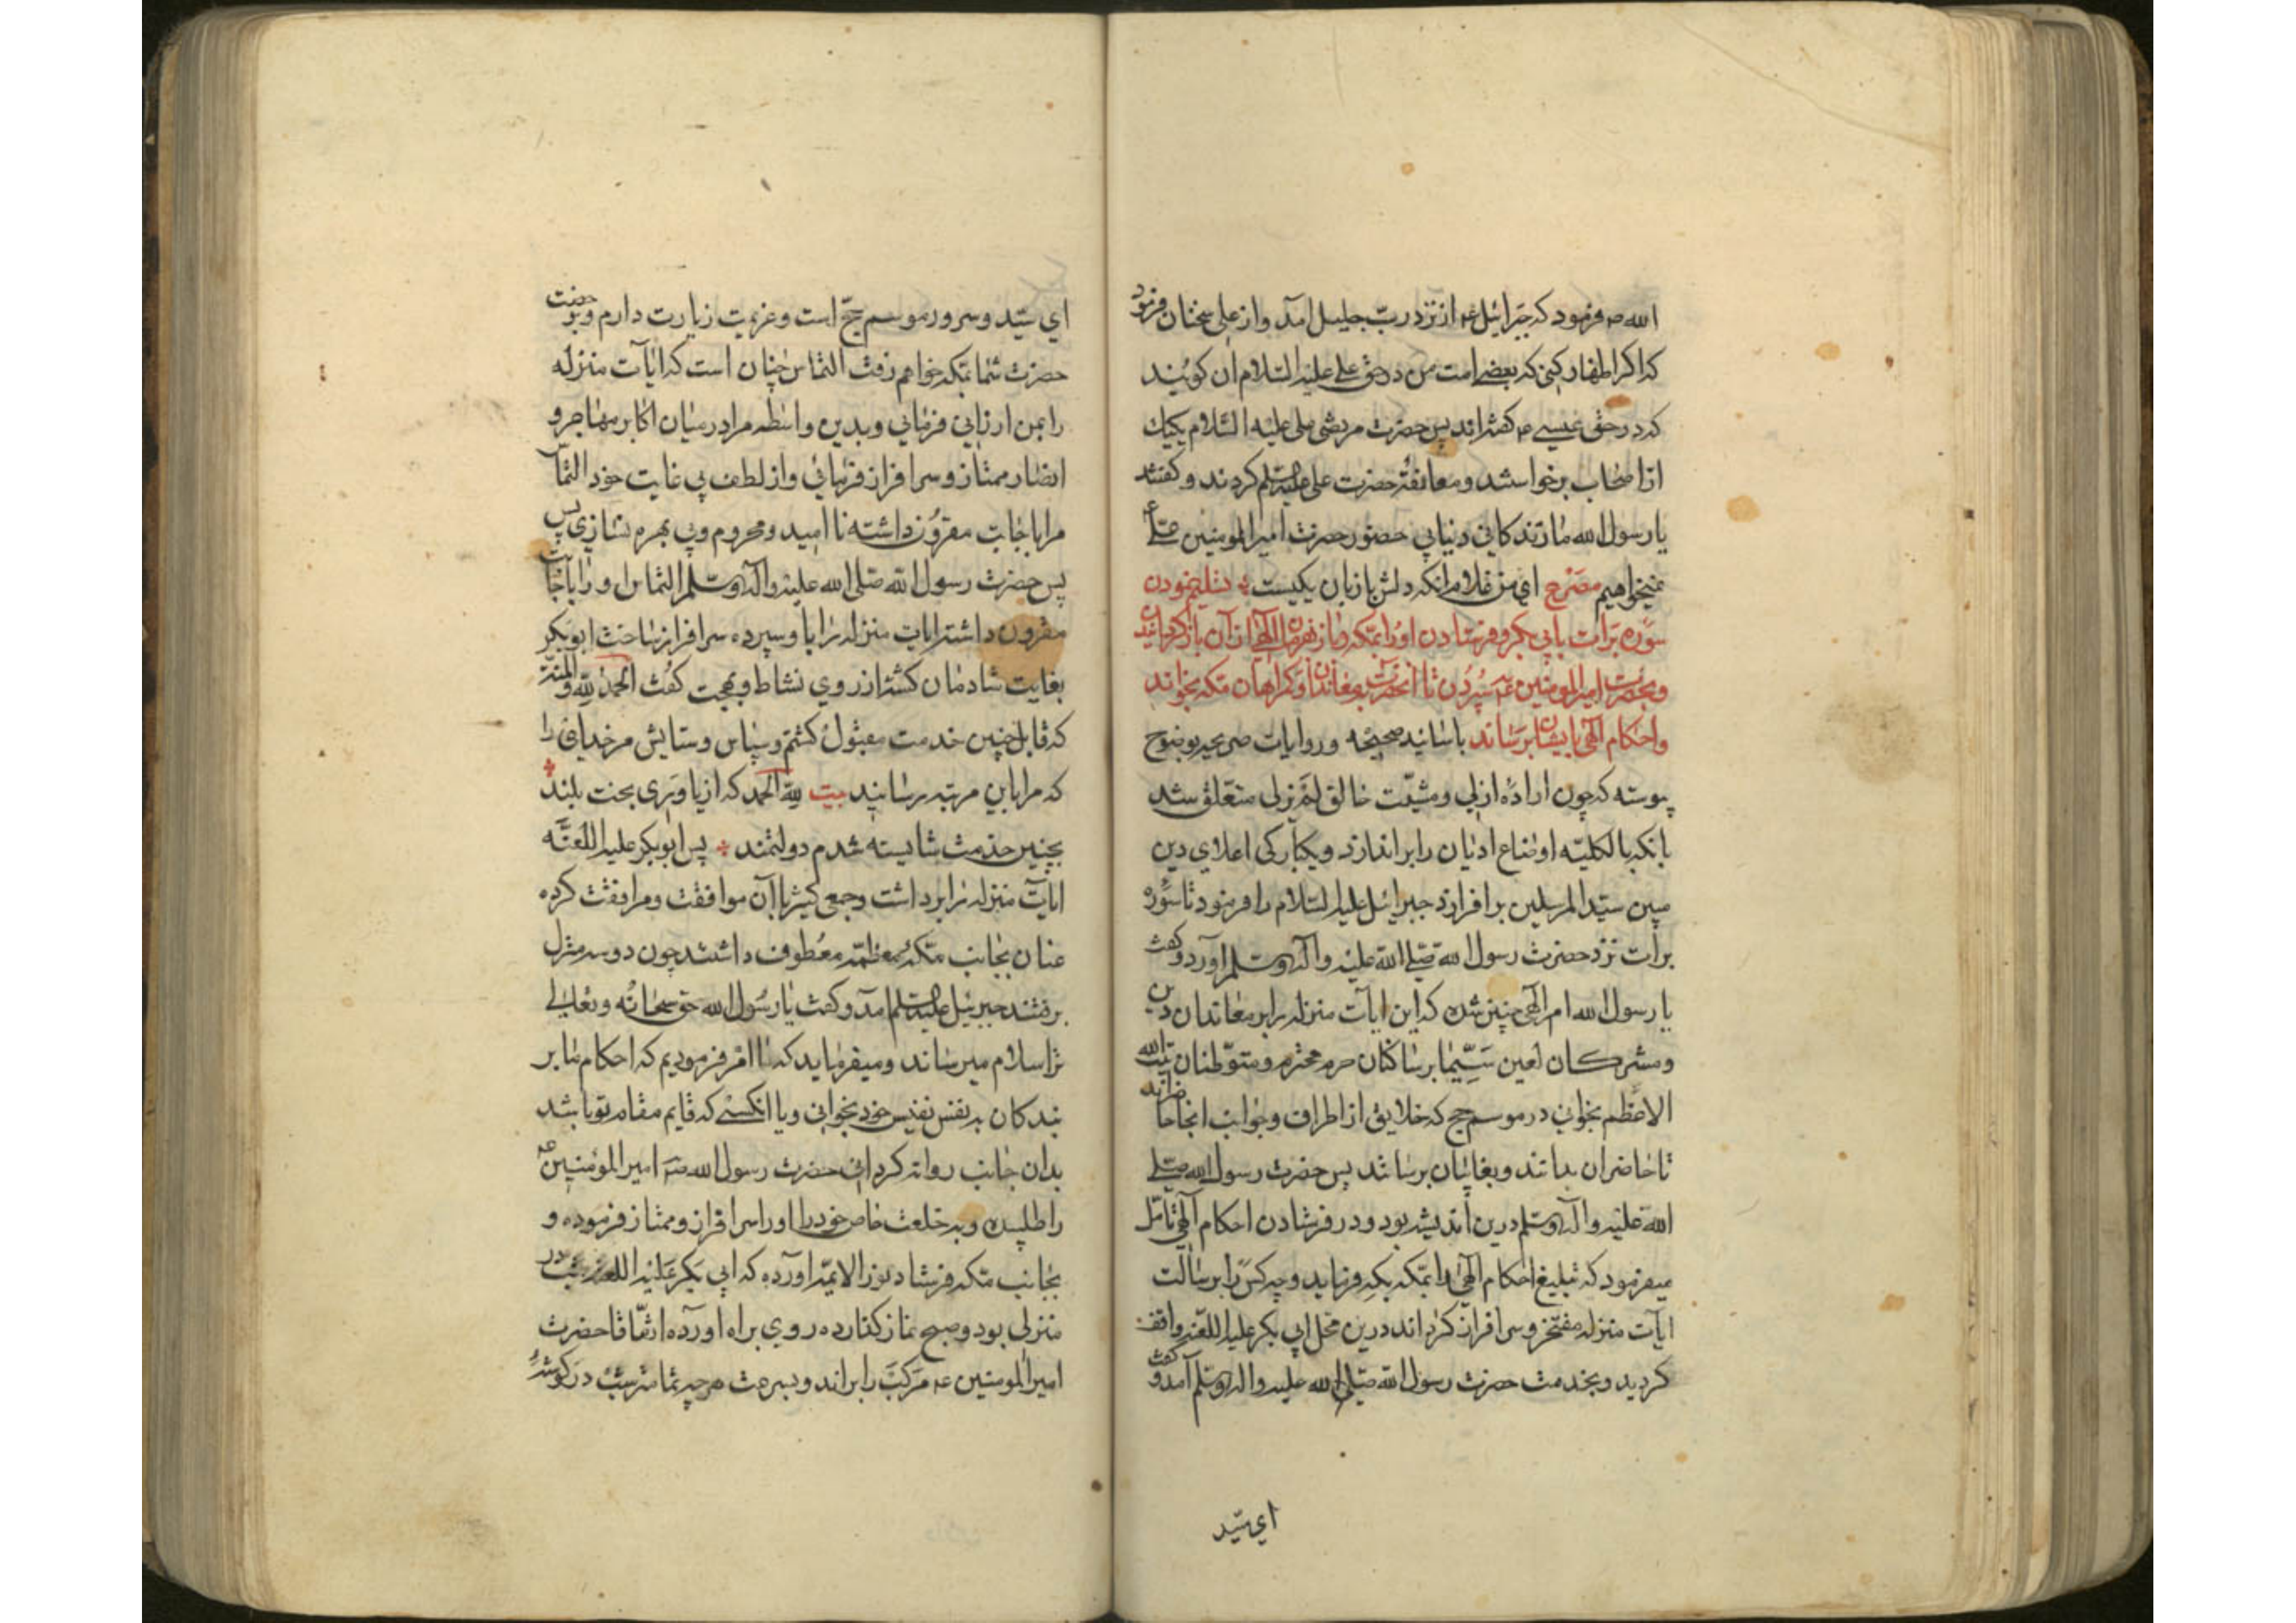 الله ص فرمود که جبرائیل ع از نزد رب جلیل آمد و از علی سخنان فرمود
که اگر اظهار کنی که بعضی امت من در حق علی علیه السلام آن گویند
که در حق عیسی ع گفته‌اند پس حضرت مرتضی علی علیه السلام یکیک
از اصحاب برخواستند و معانقهٔ حضرت علی علیه السلم کردند و گفتند
یا رسول الله ما زندکانی دنیا بی حضور حضرت امیر المومنین علی ع
نمیخواهیم مصرع ای من غلام آنکه دلش با زبان یکیست تسلیم نمودن
سوره برات بابی بکر و فرستادن او را بمکه و باز بفرمان الهی از آن باز گردانیدن
و بحضرت امیر المومنین ع سپردن تا آنحضرت بمعاندان و گمراهان مکه بخواند
و احکام الهی بایشان برساند باسانید صحیحه و روایات صریحه بوضوح
پیوسته که چون ارادهٔ ازلی و مشیت خالق لم یزلی متعلق شد
بانکه بالکلیه اوضاع ادیان را براندازد و یکبارکی اعلای دین
مبین سید المرسلین برافرازد جبرائیل علیه السلام را فرمود تا سوره
برات نزد حضرت رسول الله صلی الله علیه و آله وسلم آورد و گفت
یا رسول الله امر الهی چنین شده که این ایات منزله را بر معاندان دین
و مشرکان لعین سیما بر ساکنان حرم محترم و متوطنان بیت الله
الاعظم بخوانی در موسم حج که خلایق از اطراف و جوانب انجا حاضراند
تا حاضران بدانند و بغائبان برسانند پس حضرت رسول الله صلی
الله علیه و آله وسلم درین اندیشه بود و در فرستادن احکام الهی تامل
میفرمود که تبلیغ احکام الهی را بمکه بکه فرماید و چه کس را برسالت
ایات منزله مفتخر و سرافراز گرداند درین محل ابی بکر علیه اللعنه واقف
کردید و بخدمت حضرت رسول الله صلی الله علیه و اله وسلم آمد و گفت
ای سید
ای سید و سرور موسم حج است و عزیمت زیارت دارم و بوخصت
حضرت شما بمکه خواهم رفت التماس چنان است که ایات منزله
را بمن ارزانی فرمایی و بدین واسطه مرا در میان اکابر مهاجر و
انصار ممتاز و سرافراز فرمائی و از لطف بی غایت خود التما
مرا باجابت مقرون داشته نا امید و محروم و بی بهره نسازی پس
پس حضرت رسول الله صلی الله علیه و آله وسلم التماس او را باجابت
مقرون داشته ایات منزله را باو سپرده سرافراز ساخت ابوبکر
بغایت شادمان کشته از روی نشاط و بهجت گفت الحمد لله و المنه
که قابل چنین خدمت مقبول کشتم و سپاس و ستایش مر خدایی را
که مرا باین مرتبه رسانید بیت لله الحمد که از یاوری بخت بلند
بچنین خدمت شایسته شدم دولتمند پس ابوبکر علیه اللعنه
ایات منزله را برداشت و جمعی کثیر با آن موافقت و مرافقت کرده
عنان بجانب مکهٔ معظمه معطوف داشتند چون دو سه منزل
برفتند جبرئیل علیه السلم آمد و گفت یا رسول الله حق سبحانه و تعالی
ترا سلام میرساند و میفرماید که ما امر فرمودیم که احکام ما بر
بندکان به نفس نفیس خود بخوانی و یا انکسی که قایم مقام تو باشد
بدان جانب روانه کردانی حضرت رسول الله ص امیر المومنین ع
را طلبیده و به خلعت خاص خود را او را سرافراز و ممتاز فرموده و
بجانب مکه فرستاد نوز الایمه آورده که ابی بکر علیه اللعنه شب در
منزلی بود و صبح نماز کذارده روی براه آورده اتفاقا حضرت
امیر المومنین ع مرکب را براند و بسرعت هرچه تمامتر شب در